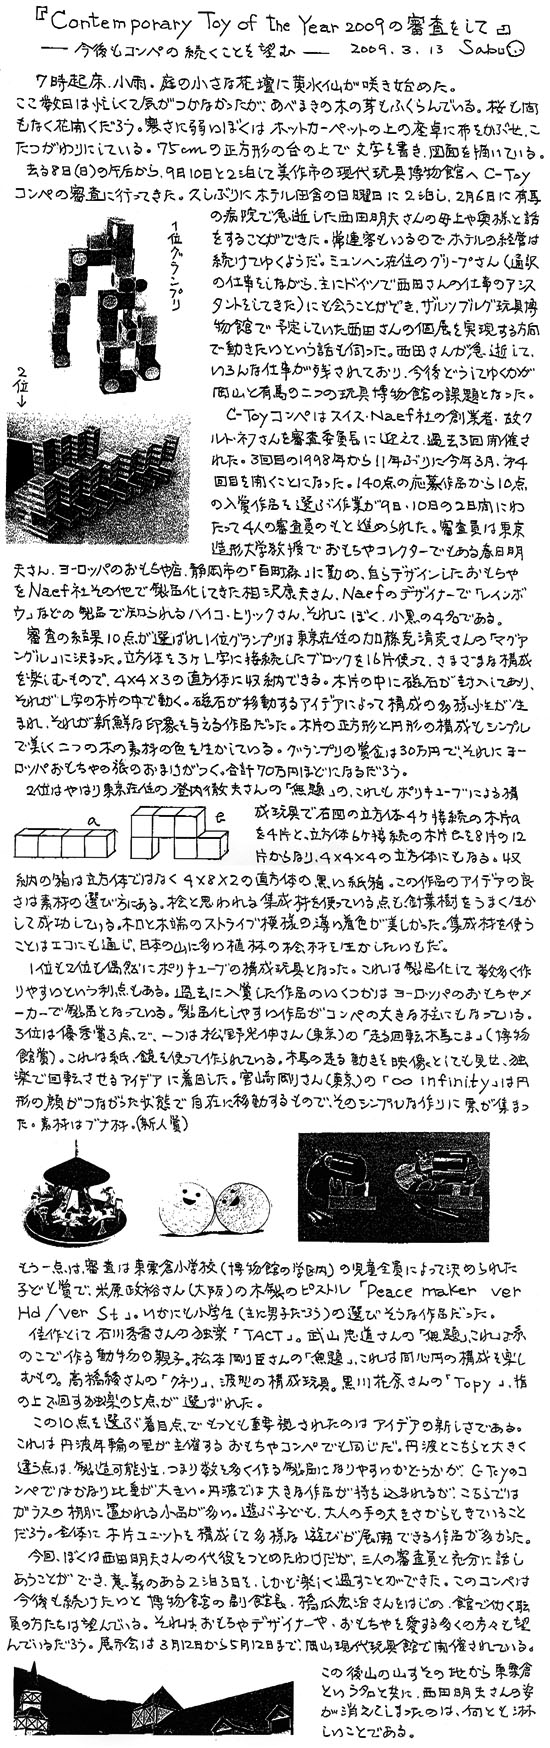 『Contemporary Toy of the Year 2009の審査をして』
― 今後もコンペの続くことを望む ― 2009.3.13 Sabu
7時起床.小雨.庭の小さな花壇に黄水仙が咲き始めた。
ここ数日は忙しくて気がつかなかったが、あべまきの木の芽もふくらんでいる。桜も間
もなく花開くだろう。寒さに弱いぼくはホットカーペットの上の座卓に布をかぶせ,こ
たつがわりにしている。75cmの正方形の台の上で文字を書き、図面を描いている。
去る8日(日)の午后から,9日10日と2泊して美作市の現代玩具博物館へC-Toy
コンペの審査に行ってきた。久しぶりにホテル田舎の日曜日に2泊し,2月6日に有馬
の病院で急逝した西田明夫さんの母上や奥様と話
をすることができた。常連客もいるのでホテルの経営は
続けてゆくようだ。ミュンヘン在住のグリープさん(通訳
の仕事をしながら、主にドイツで西田さんの仕事のアシス
タントをしてきた)にも会うことができ,ザルツブルグ玩具博
物館で予定していた西田さんの個展を実現する方向
で動きたいという話も伺った。西田さんが急逝して、
いろんな仕事が残されており,今後どうしてゆくかが
岡山と有馬の二つの玩具博物館の課題となった。
1位グランプリ
2位↓
C-Toyコンペはスイス・Naef社の創業者・故ク
ルト・ネフさんを審査委員長に迎えて、過去3回開催さ
れた。3回目の1998年から11年ぶりに今年3月,第4
回目を開くことになった。140点の応募作品から10点
の入賞作品を選ぶ作業が9日・10日の2日間にわ
たって4人の審査員のもと進められた。審査員は東京
造形大学教授でおもちゃコレクターでもある春日明
夫さん,ヨーロッパのおもちゃ店,静岡市の「百町森」に勤め,自らデザインしたおもちゃ
をNaef社その他で製品化してきた相沢康夫さん,Naefのデザイナーで「レインボ
ウ」などの製品で知られるハイコ・ヒリックさん,それにぼく,小黒の4名である。
審査の結果10点が選ばれ1位グランプリは東京在住の加藤克清克さんの「マグア
ングル」に決まった。立方体を3ケL字に接続したブロックを16片使って,さまざまな構成
を楽しむもので,4×4×3の直方体に収納できる。木片の中に磁石が封入してあり、
それがL字の木片の中で動く。磁石が移動するアイデアによって構成の多様性が生
まれ,それが新鮮な印象を与える作品だった。木片の正方形と円形の構成もシンプル
で美しく二つの木の素材の色を生かしている。グランプリの賞金は30万円で、それにヨー
ロッパおもちゃの旅のおまけがつく。合計70万円ほどになるだろう。
2位はやはり東京在住の登内徹夫さんの「無題」の、これもポリキューブによる構
成玩具で右図の立方体4ケ接続の木片a
を4片と、立方体6ケ接続の木片eを8片の12
片からなり,4×4×4の立方体にもなる。収
a e
納の箱は立方体ではなく4×8×2の直方体の黒い紙箱。この作品のアイデアの良
さは素材の選び方にある。桧と思われる集成材を使っている点も針葉樹をうまく生か
して成功している。木口と木端のストライプ模様の濃い着色が美しかった。集成材を使う
ことはエコにも通じ,日本の山に多い植林の桧材を生かしたいもだ。
1位も2位も偶然にポリキューブの構成玩具となった。これは製品化して数多く作
りやすいという利点もある。過去に入賞した作品のいくつかはヨーロッパのおもちゃメ
ーカーで製品となっている。製品化しやすい作品がコンペの大きな柱にもなっている。
3位は優秀賞3点で、一つは松野光伸さん(東京)の「走る回転木馬こま」(博物
館賞)。これは紙,鏡を使って作られている。木馬の走る動きを映像としても見せ、独
楽で回転させるアイデアに着目した。宮崎剛さん(東京)の「∞ infinity」は円
形の顔がつながった状態で自在に移動するもので,そのシンプルな作りに票が集まっ
た。素材はブナ材。(新人賞)
もう一点は、審査は東粟倉小学校(博物館の学区内)の児童全員によって決められた
子ども賞で、米原政裕さん(大阪)の木製のピストル「Peace maker ver
Hd/ver St」。いかにも小学生(主に男子だろう)の選びそうな作品だった。
佳作として石川秀香さんの独楽「TACT」。武山忠道さんの「無題」,これは糸
のこで作る動物の親子。松本剛臣さんの「無題」,これは同心円の構成を楽し
むもの。高橋綾さんの「クネリ」,波形の構成玩具。黒川花奈さんの「Topy」,指
の上で回す独楽の5点が選ばれた。
この10点を選ぶ着目点でもっとも重要視されたのはアイデアの新しさである。
これは丹波年輪の里が主催するおもちゃコンペでも同じだ。丹波とこちらと大きく
違う点は、製造可能性,つまり数を多く作る製品になりやすいかどうかが,C-Toyのコ
ンペではかなり比重が大きい。丹波では大きな作品が持ち込まれるが,こちらでは
ガラスの棚に置かれる小品が多い。遊ぶ子ども,大人の手の大きさからもきていること
だろう。全体に木片ユニットを構成して多様な遊びが展開できる作品が多かった。
今回,ぼくは西田明夫さんの代役をつとめたわけだが,三人の審査員と充分に話し
あうことができ,意義のある2泊3日を,しかも楽しく過すことができた。このコンペは
今後も続けたいと博物館の副館長・橘瓜宏治さんをはじめ,館で働く職
員の方たちは望んでいる。それはおもちゃデザイナーや,おもちゃを愛する多くの方々も望
んでいるだろう。展示会は3月12日から5月12日まで,岡山現代玩具館で開催されている。
この後山の山すその地から東粟倉
という名と共に,西田明夫さんの姿
が消えてしまったのは,何とも淋
しいことである。